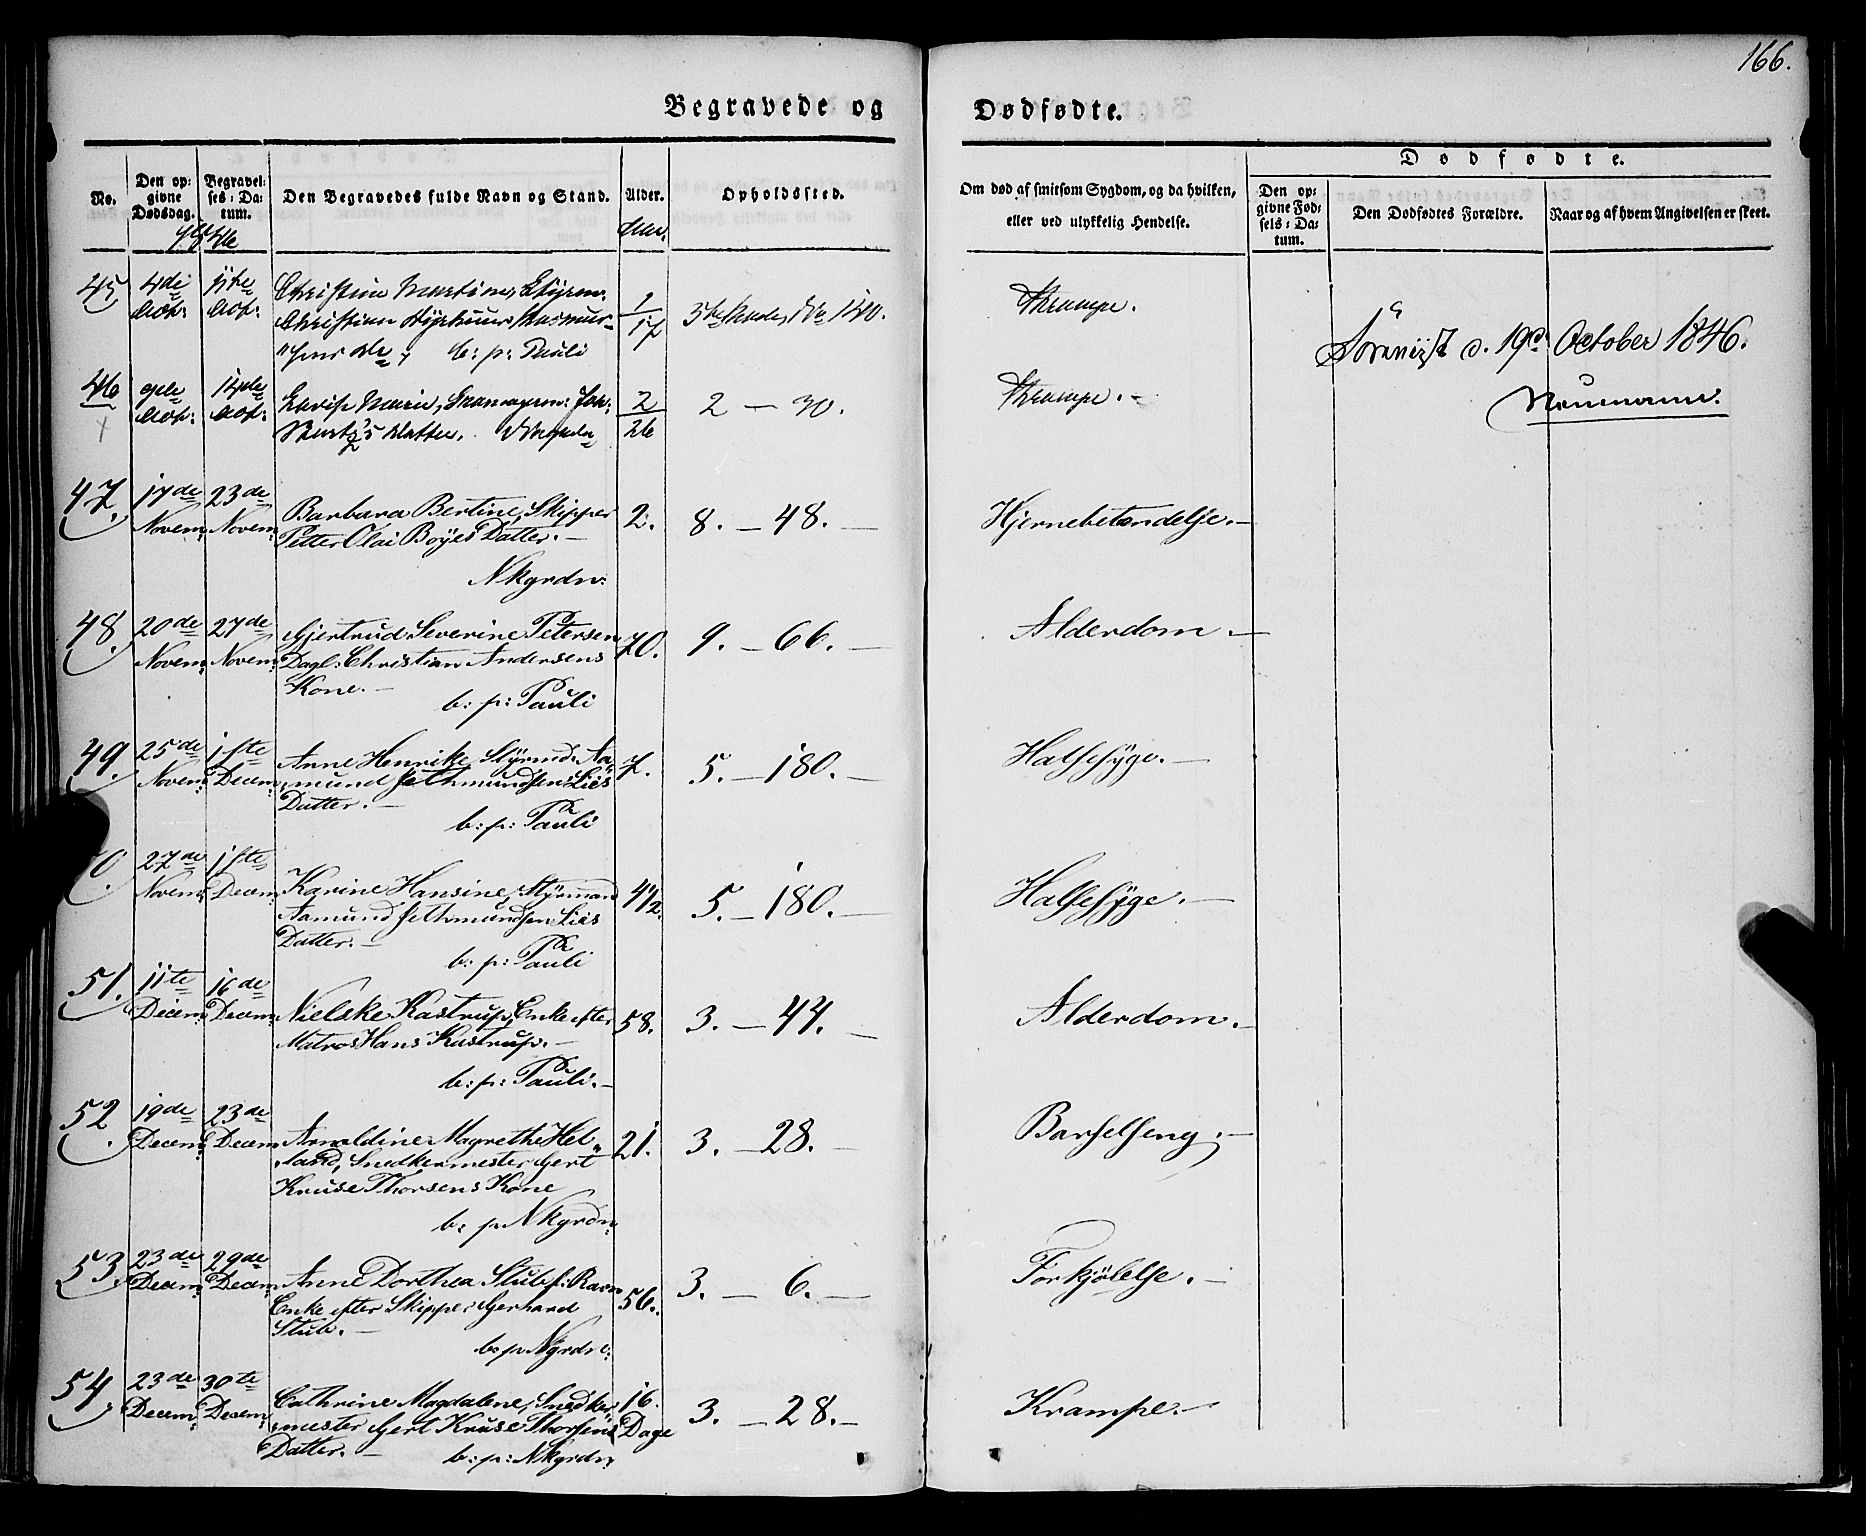 166.
Begravede og Dødfødte.
No.
Den opgivne Dødsdag.
Begravelses-Datum.
Den Begravedes fulde Navn og Stand.
Alder.
Opholdssted.
Om død af smitsom Sygdom, og da hvilken, eller ved ulykkelig Hendelse.
Dødfødte.
Den opgivne Fødsels-Datum.
Den Dødfødtes Forældre.
Naar og af hvem Angivelsen er skeet.
1846
Aar.
45 4de Oct: Oct: Christine Martine, Styrm: 1/17 5te Rode, No 180. Krampe.
Christian
b: p: Pauli
Sövnigst d. 19de October 1846.
Neumann.
46 9de Oct: 14de Oct: Marie, 2/26 2 — 30. Krampe. —
Datter.
47. 17de Novem: 23de Novem: Barbara Bertine, Skipper 2. 8. — 48. — Hjernebetændelse. —
Petter Olai Böyes Datter. —
Nkgrdn:
48. 20de Novem: 27de Novem: Gjertrud Severine Petersen 70. 9. — 66. — Alderdom. —
Dagl: Christian Andersens
Kone. —
b: p: Pauli
49. 25de Novem: 1ste Decem: Anne Henrike, Styrmd: Aa- 7. 5. — 180. — Halssyge. —
mund Sethmundsen Liës
Datter. —
b: p: Pauli
0. 27de Novem: 1ste Decem: Karine Hansine, Styrmand 4 1/2. 5. — 180. — Halssyge. —
Aamund Sethmundsen Liës
Datter. —
b: p: Pauli
51. 11te Decem: 16de Decem: Nielske Kastrup, Enke efter 58. 3. — 44. — Alderdom. —
Matros Hans Kastrup. —
b: p: Pauli. —
52. 19de Decem: 23de Decem: Arnoldine Magrethe Hel- 21. 3. — 28. — Barselseng. —
land, Snedkermester Gert
Kruse Thorsens Kone
b: p Nkgrdn:
53. 23de Decem: 29de Decem: Anne Dorthea Stub f: Ravn 56. 3. — 6. — Forkjölelse. —
Enke efter Skipper Gerhard
Stub. —
b: p Nkgrdn:
54. 23de Decem: 30te Decem: Cathrine Magdalene, Snedker- 16. Dage 3. — 28. — Krampe. —
mester Gert Kruse Thorsens
Datter. —
b: p: Nkgrdn